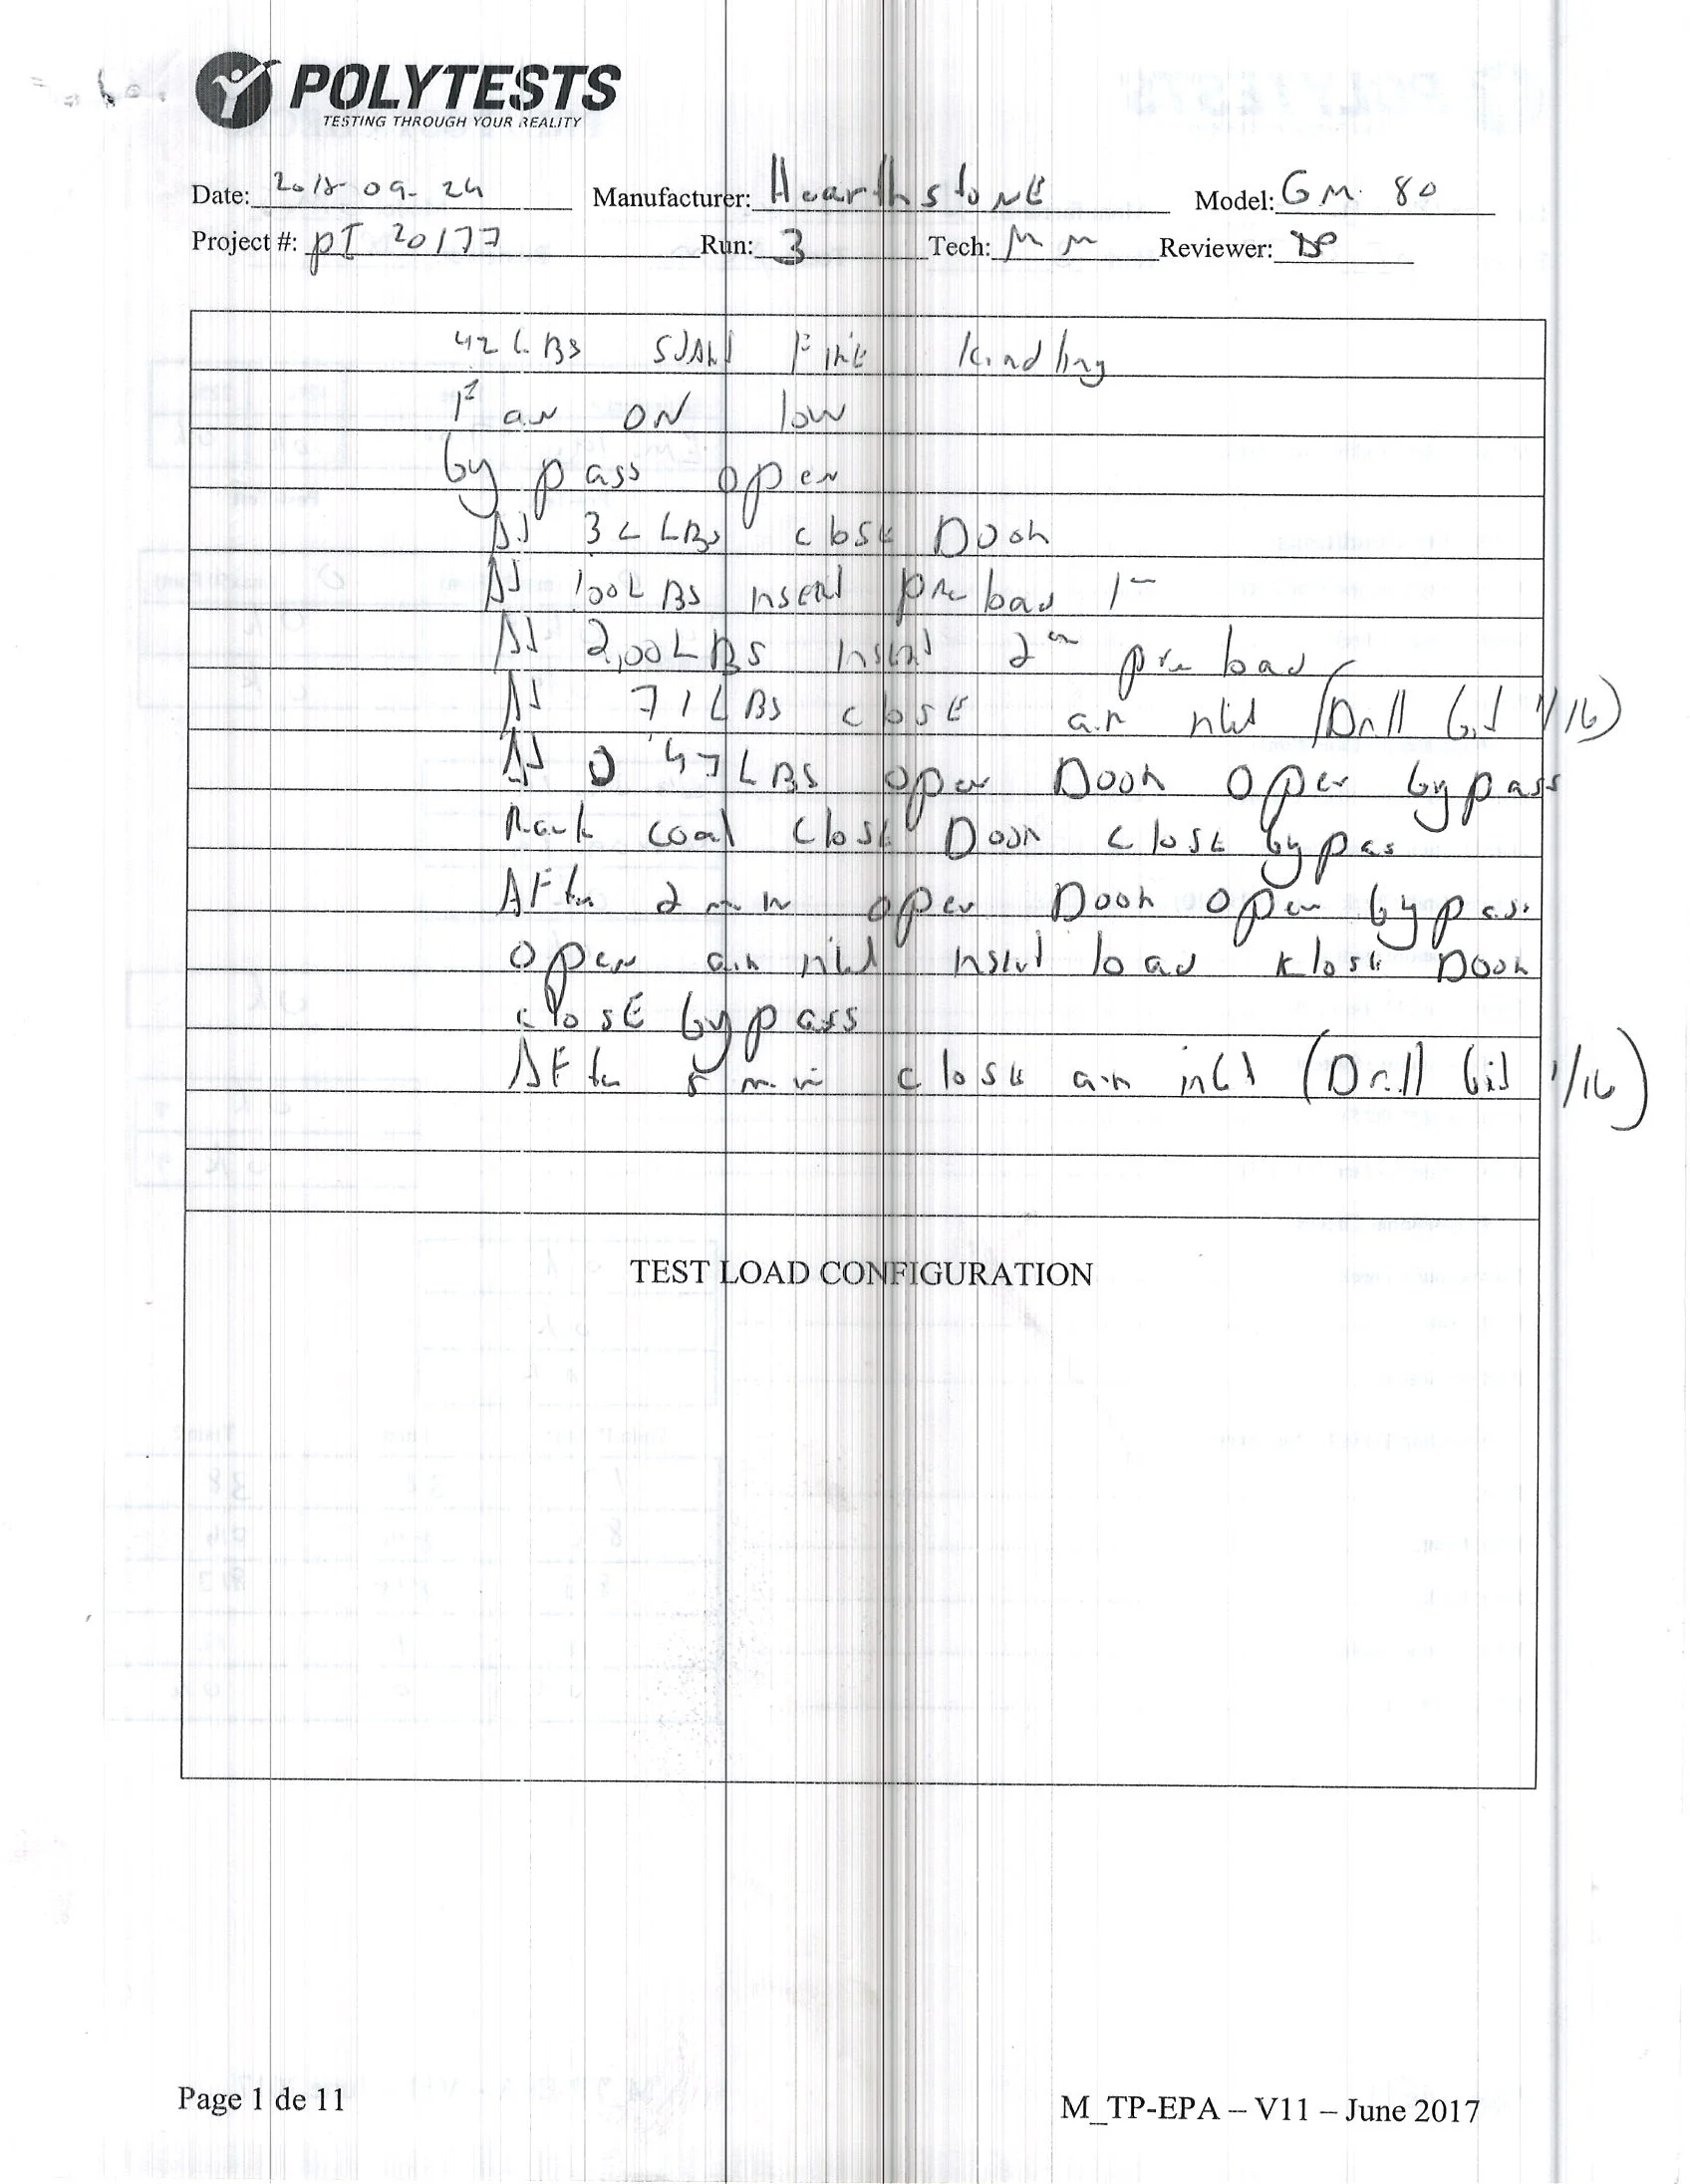 POLYTESTS
TESTING THROUGH YOUR REALITY
Date: 2018-09-24 Manufacturer: HearthstoNE Model: GM 80
Project #: PI 20177 Run: 3 Tech: MM Reviewer: DP
42 LBS START FIRE kindling
Fan ON low
by pass open
At LBS closE Door
At LBS insert pre load 1
At 2,00 LBS insert 2 pre load
At 71 LBS closE air inlet (Drill bit 1/16)
At LBS open Door Open bypass
Rack coal ClosE Door ClosE bypas
AFter 2 min open Door open bypass
Open air inlet insert load klosE Door
closE bypass
AFter 5 min closE air inlet (Drill bit 1/16)
TEST LOAD CONFIGURATION
Page 1 de 11
M_TP-EPA – V11 – June 2017